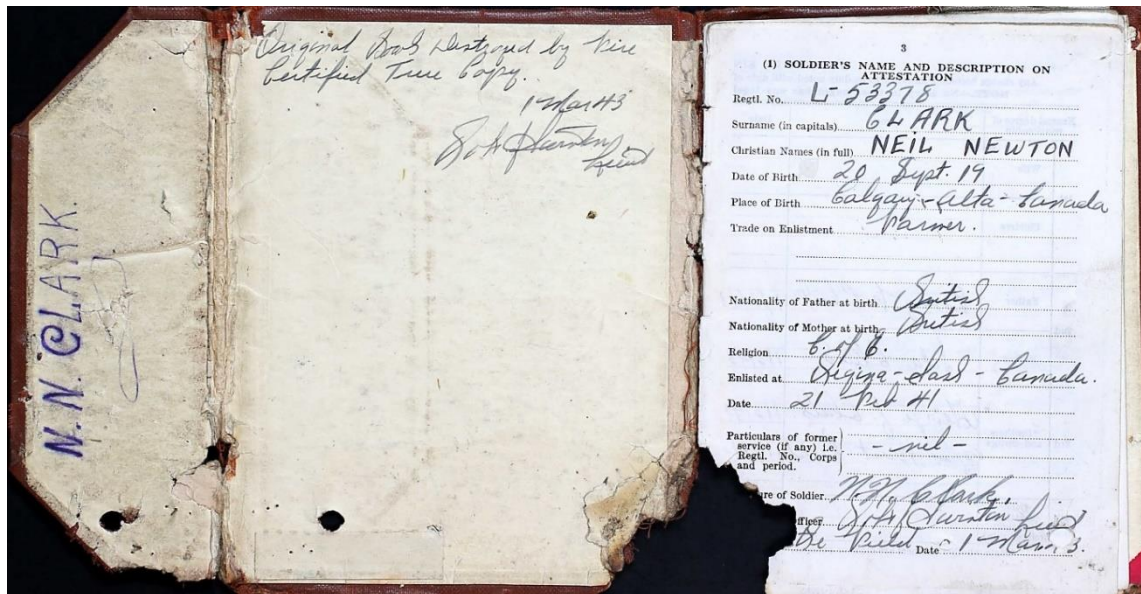 N. N. CLARK.
Original Book Destroyed by Fire
Certified True Copy.
1 Mar 43
Lieut
3
(1) SOLDIER'S NAME AND DESCRIPTION ON
ATTESTATION
Regtl. No. L-53378
Surname (in capitals) CLARK
Christian Names (in full) NEIL NEWTON
Date of Birth 20 Sept. 19
Place of Birth Calgary - Alta - Canada
Trade on Enlistment Farmer.
Nationality of Father at birth British
Nationality of Mother at birth British
Religion C. of E.
Enlisted at Regina - Sask - Canada.
Date 21 Feb 41
Particulars of former
service (if any) i.e.
Regtl. No., Corps
and period.
- nil -
ure of Soldier N. N. Clark.
fficer Lieut
Field Date 1 Mar 3.